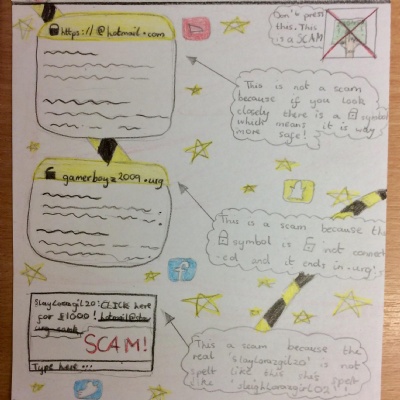 https://@hotmail.com
Don't press
this. This
is a SCAM
This is not a scam
because if you look
closely there is a symbol
which means it is way
more safe!
gamerboyz2009.urg
This is a scam because the
symbol is not connect
-ed and it ends in .urg;
CLICK here
for £1000! hotmail@
SCAM!
Type here ...
This is a scam because the
real is not
spelt like this she's spelt
like